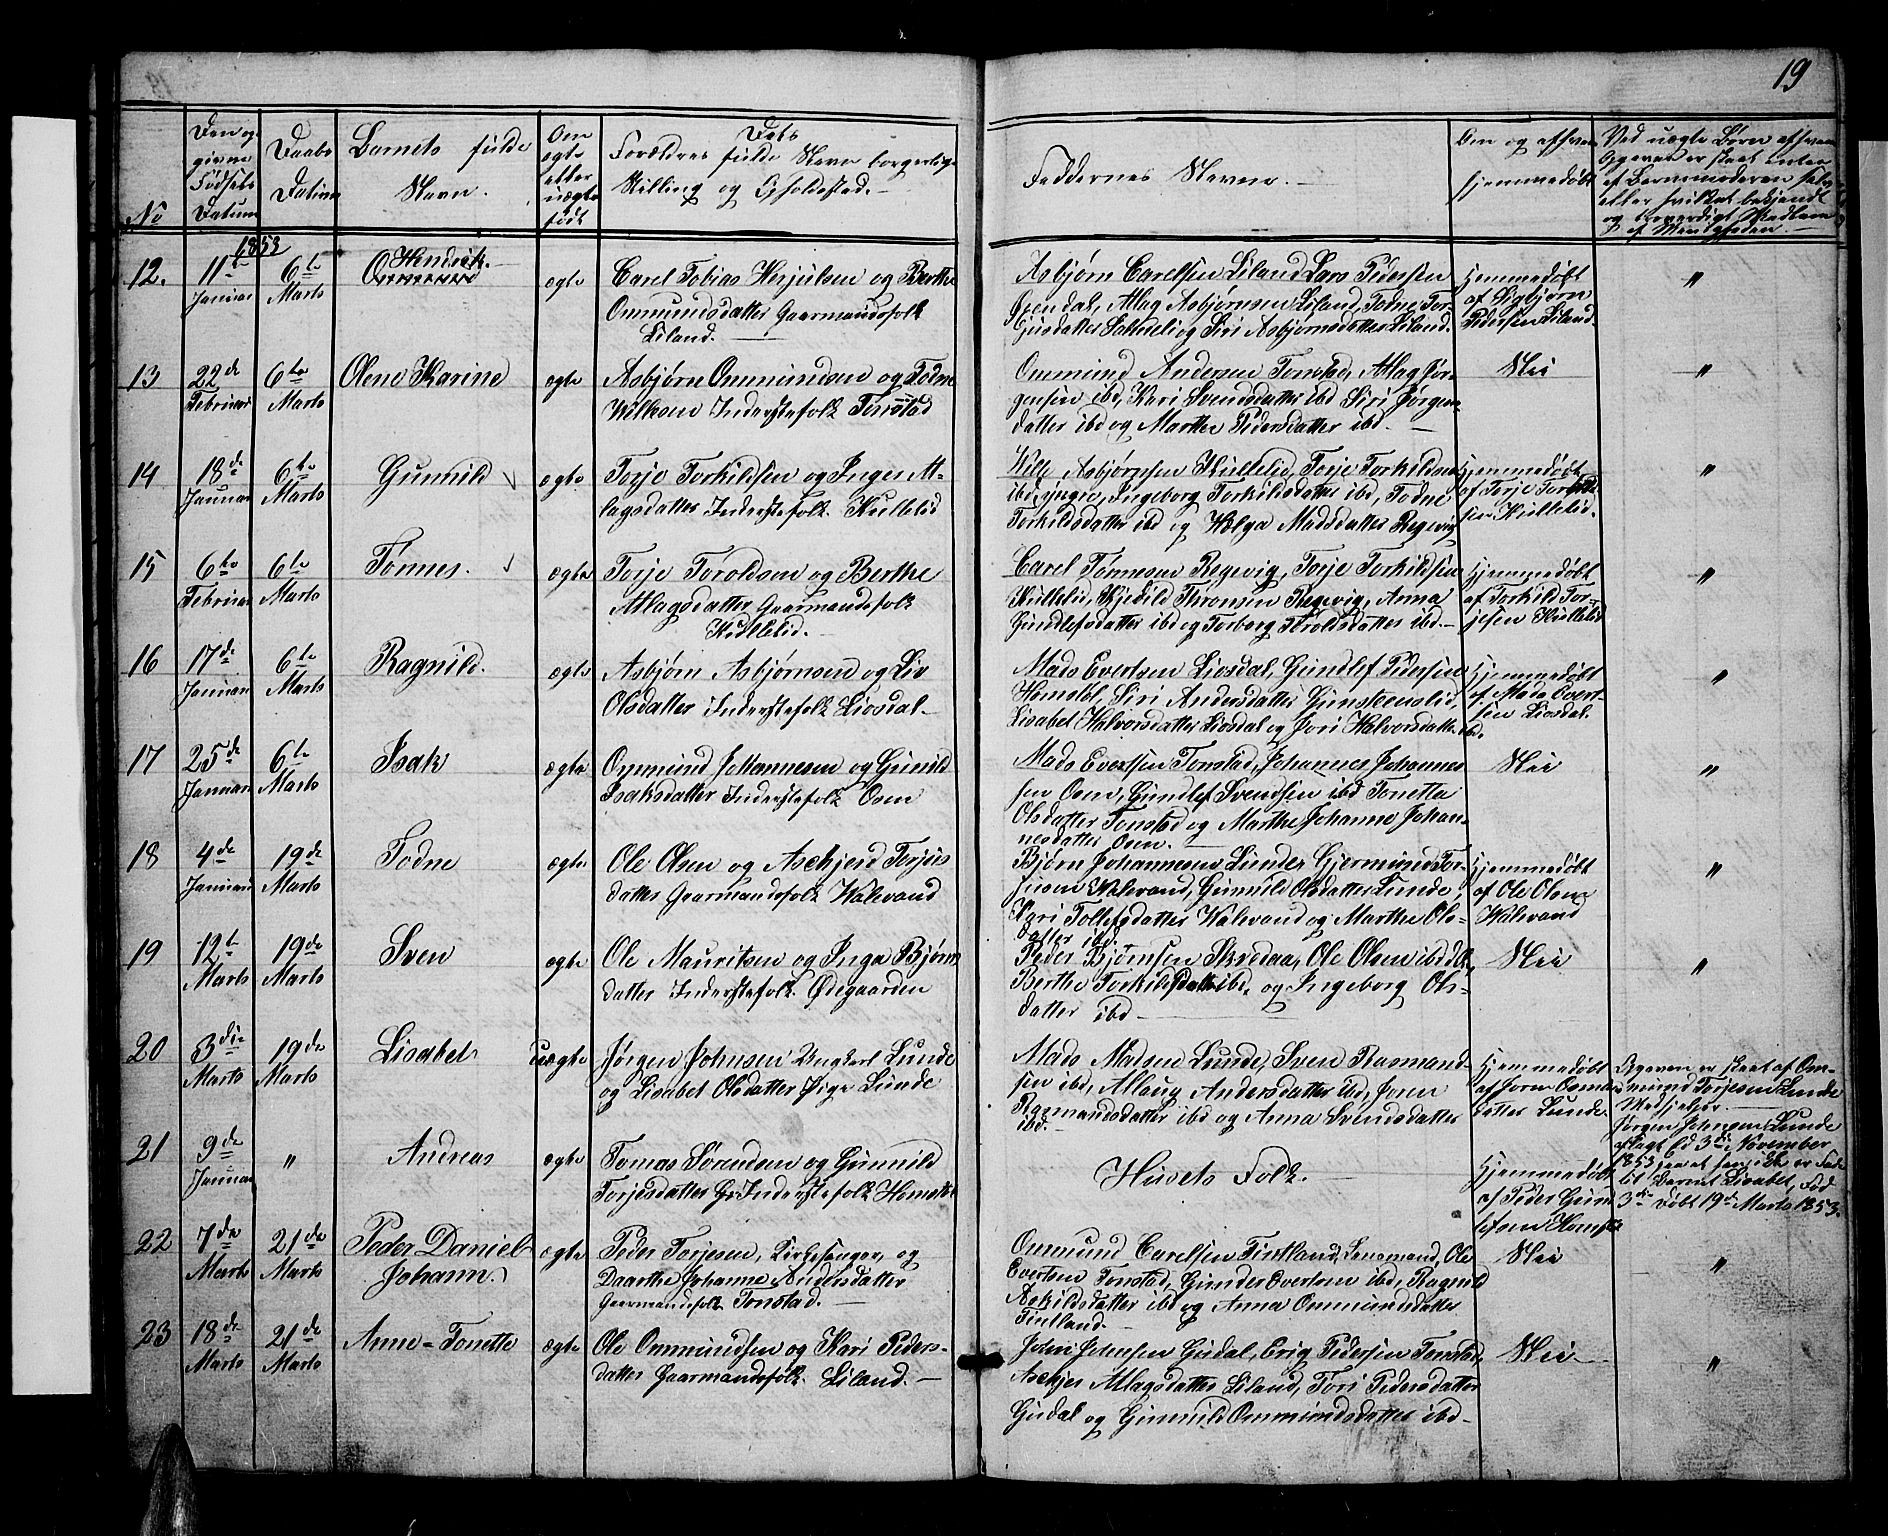 19
No
Den og-
givne
Fødsels
Datum
Daabs
Datum
Barnets fulde
Navn.
Om
ægte
eller
uægte
født
Dets
Forældres fulde Navn borgerlige
Stilling og Opholdssted.
Faddernes Navne.
Om og af hvem
hjemmedøbt
Ved uægte Børn af hvem
Opgaven er skeet enten
af Barnemoderen selv
eller hvilket bekjendt
og troværdigt Medlem
af Menigheden.
1853
12.
11te
Januar
6te
Marts
Hendrik.
ægte
Carel Tobias Herjulsen og Berthe
Ommundsdatter Gaarmandsfolk
Liland.
Asbjørn Carelsen Liland, Lars Pedersen
Atlag Asbjørnsen Liland, Todne Tor-
Siri Asbjørnsdatter Liland.
Hjemmedøbt
af Sigbjørn
Pedersen Liland.
"
13
22de
Februar
6te
Marts
Olene Karine
ægte
Asbjørn Ommundsen og Todne
Inderstefolk Tonstad
Ommund Andersen Tonstad, Atlag Jør-
gensen ibd, Kari Svendsdatter ibd Siri Jørgens-
datter ibd og Marthe Pedersdatter ibd.
Nei
"
14
18de
Januar
6te
Marts
Gunnild
ægte
Torje Torkildsen og Inger At-
lagsdatter Inderstefolk Kullelid
Asbjørnsen Kullelid, Torje Torkildsen
ibd, yngre, Ingeborg Torkildsdatter ibd, Todne
Torkildsdatter ibd og Helga Madsdatter Regevig
Hjemmedøbt
af Torje Torkild-
sen Kullelid.
"
15
6te
Februar
6te
Marts
Tønnes.
ægte
Torje Toroldsen og Berthe
Atlagsdatter Gaarmandsfolk
Kullelid.
Carel Tønnesen Regevig, Torje Torkildsen
Kullelid, Kjedild Thronsen Regevig, Anna
Gundlefsdatter ibd og Torborg Toroldsdatter ibd.
Hjemmedøbt
af Torkild Tor-
jesen Kullelid
"
16
17de
Januar
6te
Marts
Ragnild.
ægte
Asbjørn Asbjørnsen og Liv
Olsdatter Inderstefolk Liosdal
Mads Evertsen Liosdal, Gundlef Pedersen
Homstøl, Siri Andersdatter Gunstenslid,
Lisabet Halvorsdatter Liosdal og Jori Halvorsdatter ibd.
Hjemmedøbt
af Mads Evert-
sen Liosdal.
"
17
25de
Januar
6te
Marts
Isak
ægte
Ommund Johannesen og Gunild
Isaksdatter Inderstefolk Osen
Mads Evertsen Tonstad, Johannes Johannes
sen Osen, Gundlef Svendsen ibd Tonetta
Olsdatter Tonstad og Marthe Johanne Johan-
nesdatter Osen.
Nei
"
18
4de
Januar
19de
Marts
Todne
ægte
Ole Olsen og Aschjerd Torjus
datter Gaarmandsfolk Walevand
Bjørn Johannesen Lunde, Gjermund Tor-
jusen Walevand, Gunnild Olsdatter Lunde,
Kari Tollefsdatter Walevand og Marthe Ols-
datter ibd.
Hjemmedøbt
af Ole Olsen
Walevand
"
19
12te
Marts
19de
Marts
Sven
ægte
Ole Mauritsen og Inga Bjørns
datter Inderstefolk Ødegaarden
Peder Bjørnsen Skredaa, Ole Olsen ibd
Berthe Torkildsdatter ibd, og Ingeborg Ols-
datter ibd
Nei
"
20
3die
Marts
19de
Marts
Lisabet
uægte
Jørgen Johnsen Ungkarl Lunde
og Lisabet Olsdatter Pige Lunde
Mads Madsen Lunde, Sven Rasmund-
sen ibd, Atlaug Andersdatter ibd, Joren
Rasmundsdatter ibd og Anna Svendsdatter
ibd.
Hjemmedøbt
af Joren Osmunds
datter Lunde.
Opgaven er skeet af Om-
mund Torjesen Lunde
Jørgen Johnsen Lunde
aflagt Ed 3die November
1853 paa at han ikke er Fader
til Barnet Lisabet, Fød
3die døbt 19de Marts 1853.
21
9de
Januar
"
Andreas
ægte
Tomas Sørendsen og Gunnild
Torjesdatter Inderstefolk Homstøl
Husets Folk.
Hjemmedøbt
af Peder Gund
lefsen Homstøl
22
7de
Marts
21de
Marts
Peder Daniel
Johann.
ægte
Peder Torjesen, Kirkesanger, og
Daarthe Johanne Andersdatter
Gaarmandsfolk Tonstad.
Ommund Carelsen Fintland, Lensmand, Ole
Evertsen Tonstad, Gunder Evertsen ibd, Ragnild
Askildsdatter ibd og Anna Ommundsdatter
Fintland.
Nei
"
23
18de
Marts
21de
Marts
Anne-Tonette
ægte
Ole Ommundsen og Kari Peders-
datter Gaarmandsfolk Liland.
John Johnsen Gudal, Erig Pedersen Tonstad,
Aschjer Atlagsdatter Liland, Tori Pedersdatter
Gudal og Gunnild Ommundsdatter ibd
Nei
"